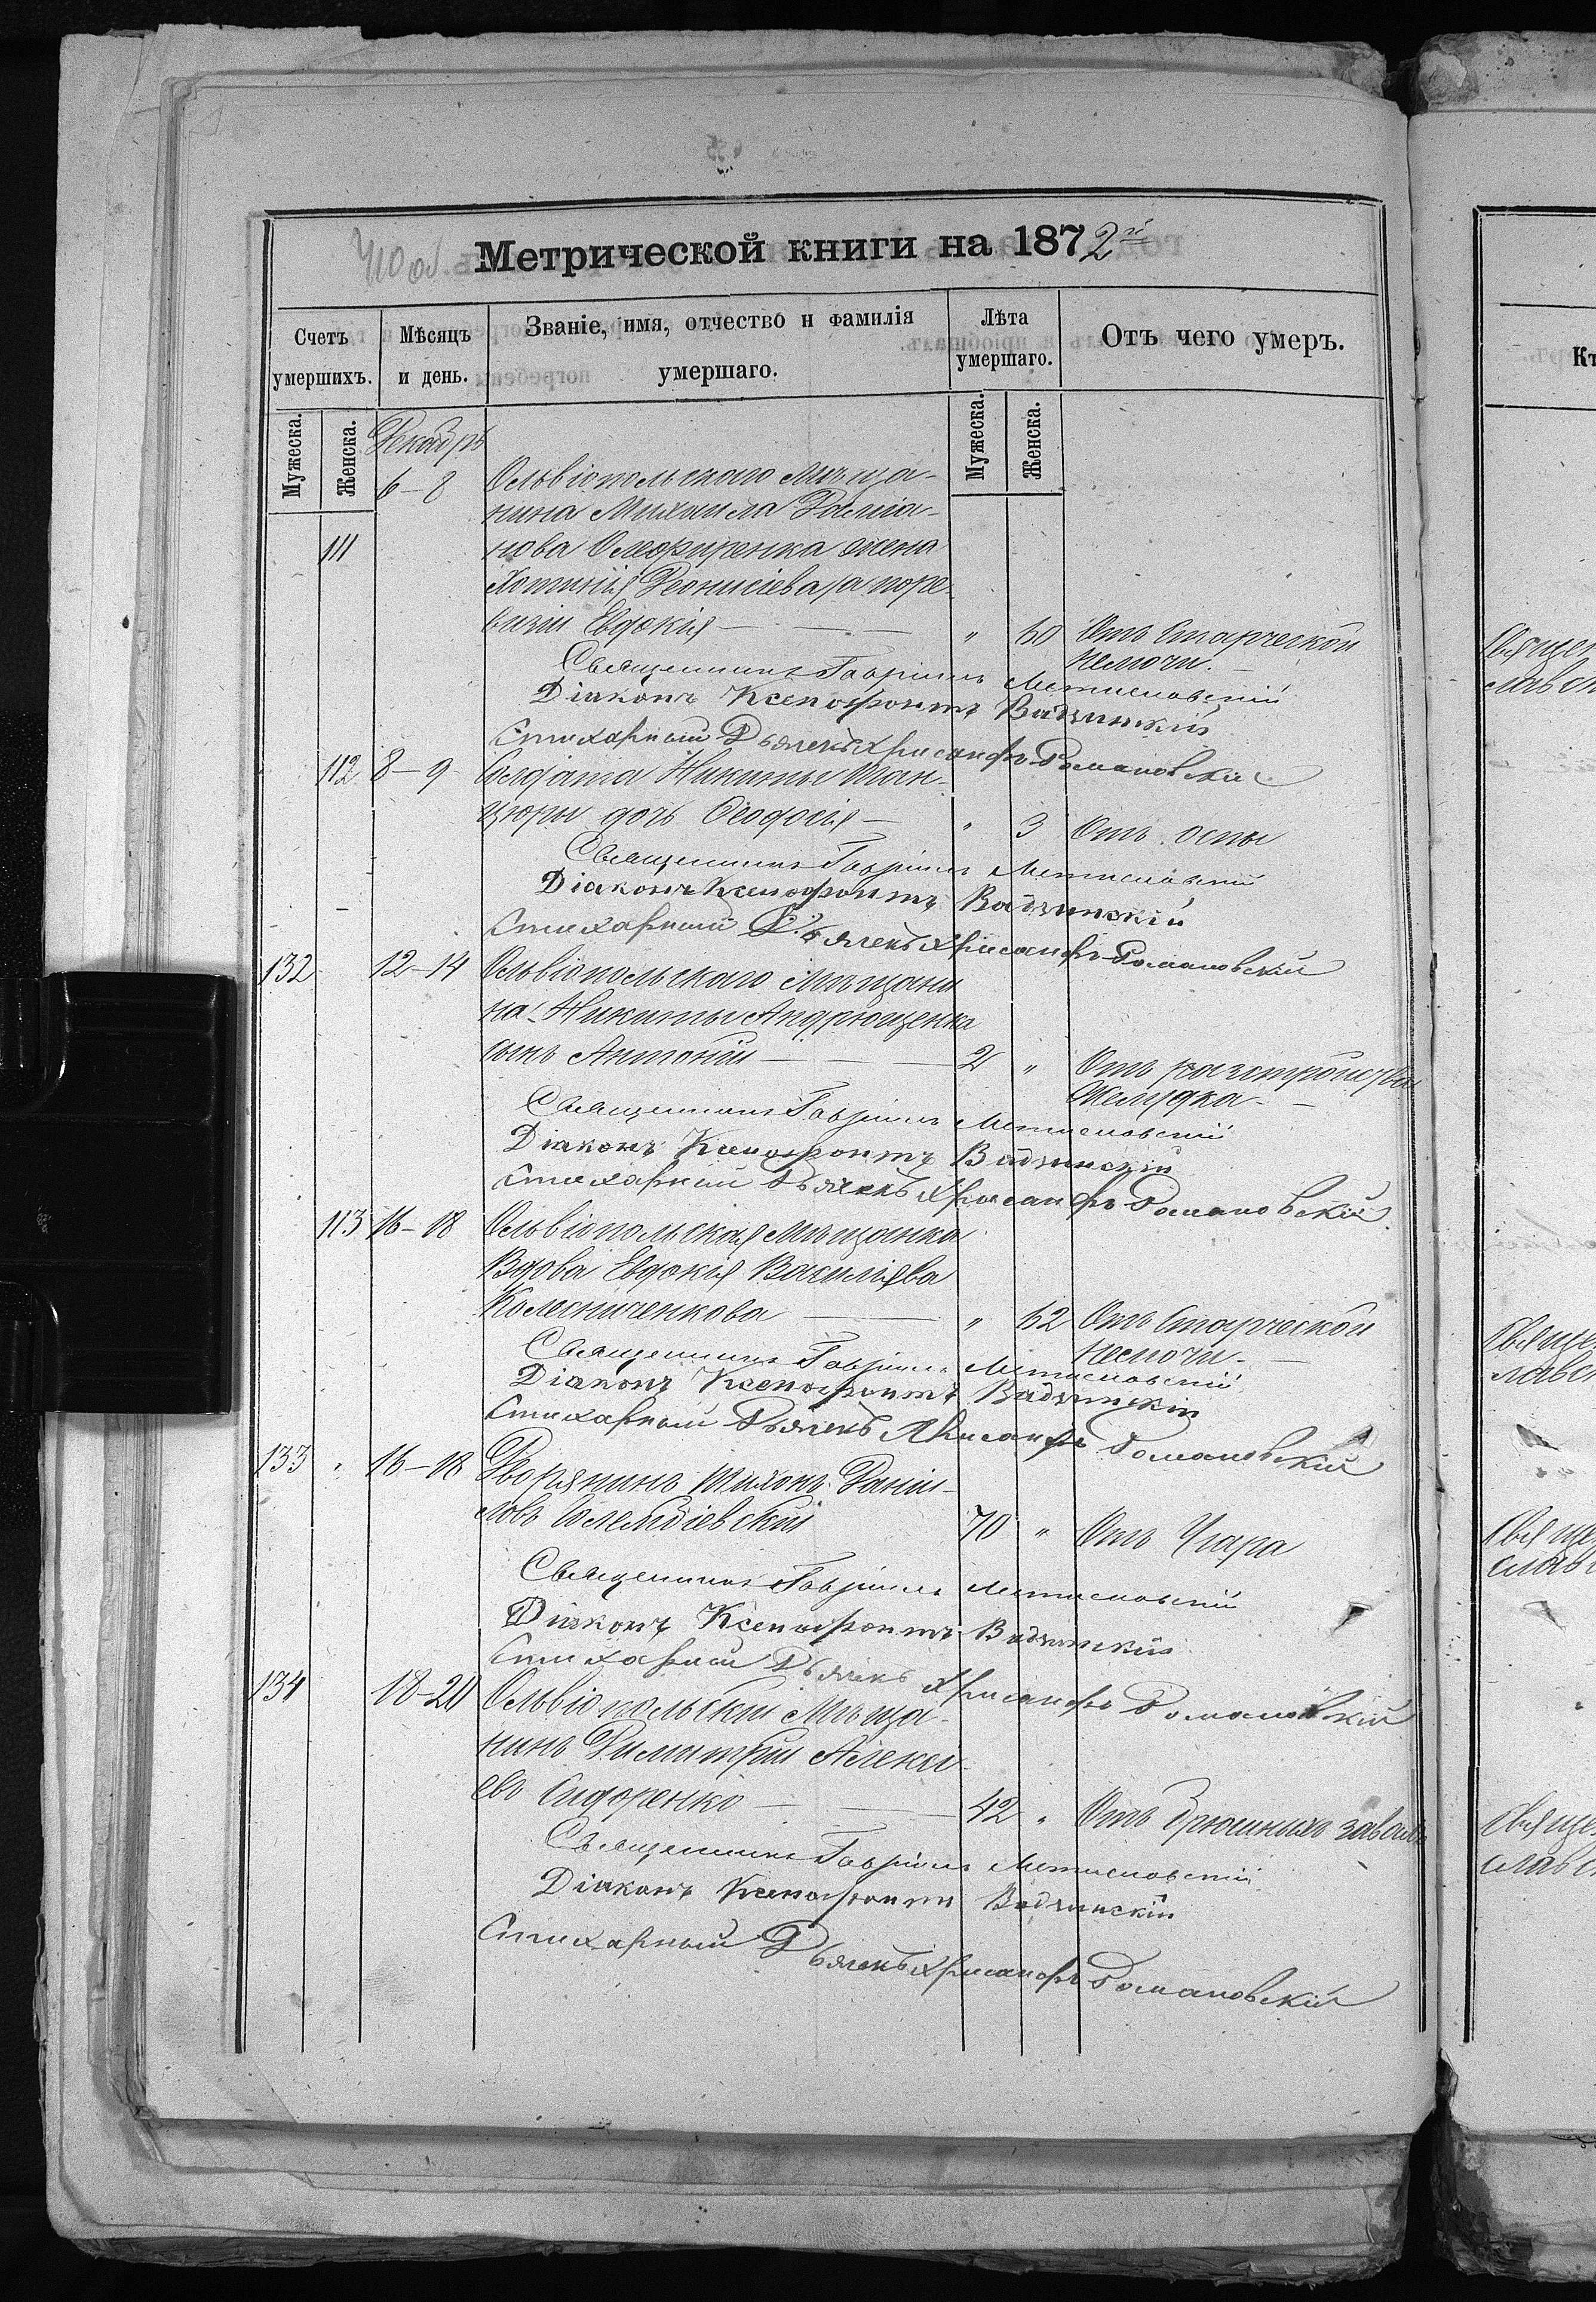 410 об.
Метрической книги на 1872й
Счетъ умершихъ.
Мѣсяцъ и день.
Званіе, имя, отчество и фамилія умершаго.
Лѣта умершаго.
Отъ чего умеръ.
Мужеска.
Женска.
Мужеска.
Женска.
Декабрь
6-8 Ольвіопольскаго мѣща-
нина Михаила Даміа-
111 нова жена
Деонисіева а по ре-
визіи Евдокія — " 60 Отъ старческой
немочи.
Священникъ Гавріилъ Мстиславскій
Діаконъ Ксенофонтъ Вадзинскій
Стихарный Дьячекъ Хрисанфъ Романовскій
112 8-9 Солдата Никиты
дочь Ѳеодосія — " 3 Отъ оспы
Священникъ Гавріилъ Мстиславскій
Діаконъ Ксенофонтъ Вадзинскій
Стихарный Дьячекъ Хрисанфъ Романовскій
132 12-14 Ольвіопольскаго мѣщани
на Никиты Андрющенка
сынъ Антоній — 2 " Отъ разстройства
желудка
Священникъ Гавріилъ Мстиславскій
Діаконъ Ксенофонтъ Вадзинскій
Стихарный Дьячекъ Хрисанфъ Романовскій
113 16-18 Ольвіопольская мѣщанка
Вдова Евдокія Василіева
Колесниченкова — " 62 Отъ старческой
немочи
Священникъ Гавріилъ Мстиславскій
Діаконъ Ксенофонтъ Вадзинскій
Стихарный Дьячекъ Хрисанфъ Романовскій
133 " 16-18 Дворянинъ Тихонъ Даніи-
ловъ 70 " Отъ Угара
Священникъ Гавріилъ Мстиславскій
Діаконъ Ксенофонтъ Вадзинскій
Стихарный Дьячекъ Хрисанфъ Романовскій
134 18-20 Ольвіопольскій мѣща-
нинъ Димитрій Алексі-
евъ Сидоренко — 42 " Отъ
Священникъ Гавріилъ Мстиславскій
Діаконъ Ксенофонтъ Вадзинскій
Стихарный Дьячекъ Хрисанфъ Романовскій